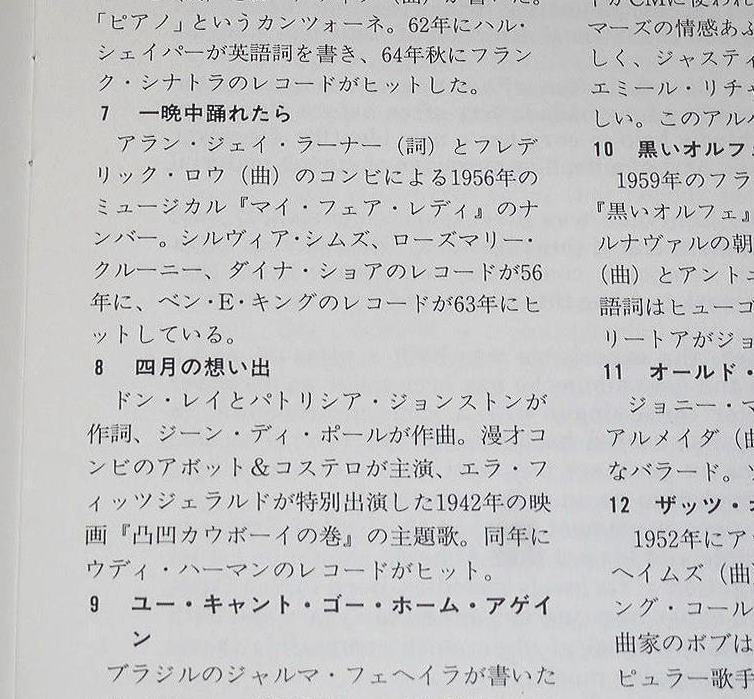 「ピアノ」というカンツォーネ。62年にハル・
シェイパーが英語詞を書き、64年秋にフラン
ク・シナトラのレコードがヒットした。
7 一晩中踊れたら
アラン・ジェイ・ラーナー（詞）とフレデ
リック・ロウ（曲）のコンビによる1956年の
ミュージカル『マイ・フェア・レディ』のナ
ンバー。シルヴィア・シムズ、ローズマリー・
クルーニー、ダイナ・ショアのレコードが56
年に、ベン・E・キングのレコードが63年にヒ
ットしている。
8 四月の想い出
ドン・レイとパトリシア・ジョンストンが
作詞、ジーン・ディ・ポールが作曲。漫才コ
ンビのアボット＆コステロが主演、エラ・フ
ィッツジェラルドが特別出演した1942年の映
画『凸凹カウボーイの巻』の主題歌。同年に
ウディ・ハーマンのレコードがヒット。
9 ユー・キャント・ゴー・ホーム・アゲイ
ン
ブラジルのジャルマ・フェヘイラが書いた
マーズの情感あふ
しく、ジャスティ
エミール・リチャ
しい。このアルバ
10 黒いオルフェ
1959年のフラ
『黒いオルフェ』
ルナヴァルの朝
（曲）とアントニ
語詞はヒューゴ
リートアがジョ
11 オールド・
ジョニー・マ
アルメイダ（曲
なバラード。ソ
12 ザッツ・オ
1952年にア
ヘイムズ（曲）
ング・コール
曲家のボブは
ピュラー歌手